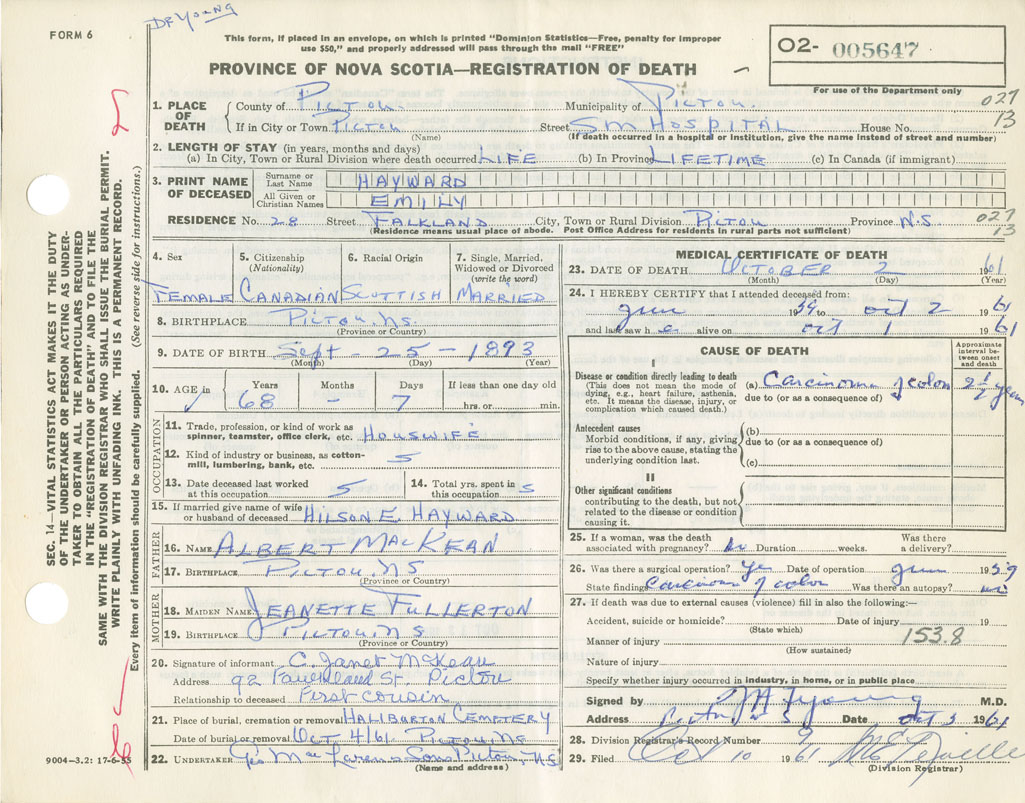 FORM 6
Dr Young
This form, if placed in an envelope, on which is printed "Dominion Statistics—Free, penalty for improper
use $50," and properly addressed will pass through the mail "FREE"
PROVINCE OF NOVA SCOTIA—REGISTRATION OF DEATH
O2- 005647
For use of the Department only
027
13
1. PLACE OF DEATH County of Pictou. Municipality of Pictou.
If in City or Town Pictou Street SM Hospital House No.
(Name) (If death occurred in a hospital or institution, give the name instead of street and number)
2. LENGTH OF STAY (in years, months and days)
(a) In City, Town or Rural Division where death occurred LIFE (b) In Province LIFETIME (c) In Canada (if immigrant)
3. PRINT NAME OF DECEASED Surname or Last Name HAYWARD
All Given or Christian Names EMILY
RESIDENCE No. 28 Street FALKLAND City, Town or Rural Division Pictou Province N.S
(Residence means usual place of abode. Post Office Address for residents in rural parts not sufficient)
027
13
4. Sex 5. Citizenship (Nationality) 6. Racial Origin 7. Single, Married, Widowed or Divorced (write the word)
FEMALE CANADIAN SCOTTISH MARRIED
8. BIRTHPLACE Pictou, NS.
(Province or Country)
9. DATE OF BIRTH Sept - 25 - 1893
(Month) (Day) (Year)
10. AGE in Years Months Days If less than one day old
68 - 7 hrs. or min.
OCCUPATION
11. Trade, profession, or kind of work as spinner, teamster, office clerk, etc. HOUSWIFE
12. Kind of industry or business, as cotton-mill, lumbering, bank, etc. S
13. Date deceased last worked at this occupation S 14. Total yrs. spent in this occupation S
15. If married give name of wife or husband of deceased HILSON E. HAYWARD
FATHER
16. NAME ALBERT MACKEAN
17. BIRTHPLACE PICTOU, NS
(Province or Country)
MOTHER
18. MAIDEN NAME JEANETTE FULLERTON
19. BIRTHPLACE PICTOU, NS
(Province or Country)
20. Signature of informant C. Janet McKean
Address 92 St. Pictou
Relationship to deceased First cousin
21. Place of burial, cremation or removal HALIBURTON CEMETERY
Date of burial or removal Oct 4/61 Pictou, NS
22. UNDERTAKER MacLaren & Sons Pictou, N.S
(Name and address)
MEDICAL CERTIFICATE OF DEATH
23. DATE OF DEATH OCTOBER 2 1961
(Month) (Day) (Year)
24. I HEREBY CERTIFY that I attended deceased from:
1959 to oct 2 1961
and last saw h alive on oct 1 1961
CAUSE OF DEATH Approximate interval between onset and death
I
Disease or condition directly leading to death (a) Carcinoma of colon 2 1/2 years
(This does not mean the mode of dying, e.g., heart failure, asthenia, etc. It means the disease, injury, or complication which caused death.) due to (or as a consequence of)
Antecedent causes (b)
Morbid conditions, if any, giving rise to the above cause, stating the underlying condition last. due to (or as a consequence of)
(c)
II
Other significant conditions
contributing to the death, but not related to the disease or condition causing it.
25. If a woman, was the death associated with pregnancy? no Duration weeks. Was there a delivery?
26. Was there a surgical operation? yes Date of operation 1959
State findings Carcinoma of colon Was there an autopsy? no
27. If death was due to external causes (violence) fill in also the following:—
Accident, suicide or homicide? Date of injury 19
(State which)
Manner of injury 153.8
(How sustained)
Nature of injury
Specify whether injury occurred in industry, in home, or in public place
Signed by Young M.D.
Address Pictou N S Date Oct 3 1961
28. Division Registrar's Record Number
29. Filed Oct 10 1961
(Division Registrar)
SEC. 14—VITAL STATISTICS ACT MAKES IT THE DUTY
OF THE UNDERTAKER OR PERSON ACTING AS UNDER-
TAKER TO OBTAIN ALL THE PARTICULARS REQUIRED
IN THE "REGISTRATION OF DEATH" AND TO FILE THE
SAME WITH THE DIVISION REGISTRAR WHO SHALL ISSUE THE BURIAL PERMIT.
WRITE PLAINLY WITH UNFADING INK. THIS IS A PERMANENT RECORD.
Every item of information should be carefully supplied. (See reverse side for instructions.)
9004—3.2: 17-6-55